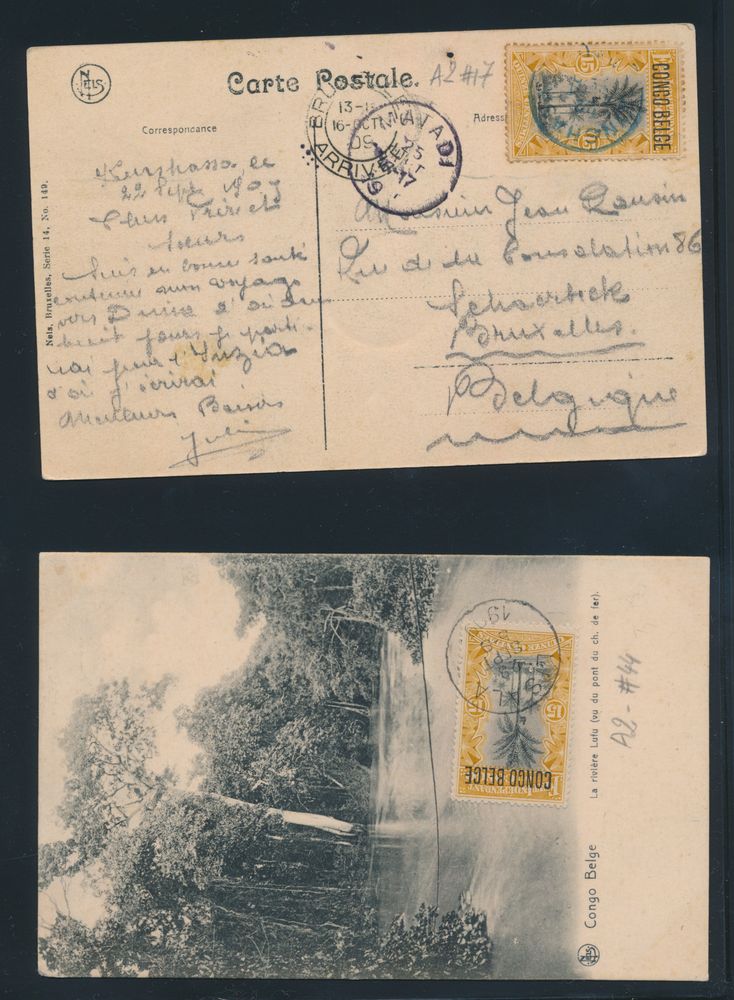 NELS
Carte Postale.
A2 #17
Correspondance
Adresse
15
CONGO BELGE
BRUX
13-
16-OCT
09
ARRIVE
MATADI
25
SEPT
Nels, Bruxelles, Serie 14, No. 149.
Kinshassa le
22 Sept 1909
Chers Frère et
Soeurs
Suis en bonne santé
continue mon voyage
vers Duma d'où dans
huit jours je parti-
rai pour l'Inzia
d'où j'écrirai
Meilleurs Baisers
Jules
Monsieur Jean
Rue de la Consolation 86
Schaerbeek
Bruxelles.
Belgique
15
CONGO BELGE
INDEPENDANT
La rivière Lufu (vu du pont du ch. de fer).
A2-#44
Congo Belge
NELS